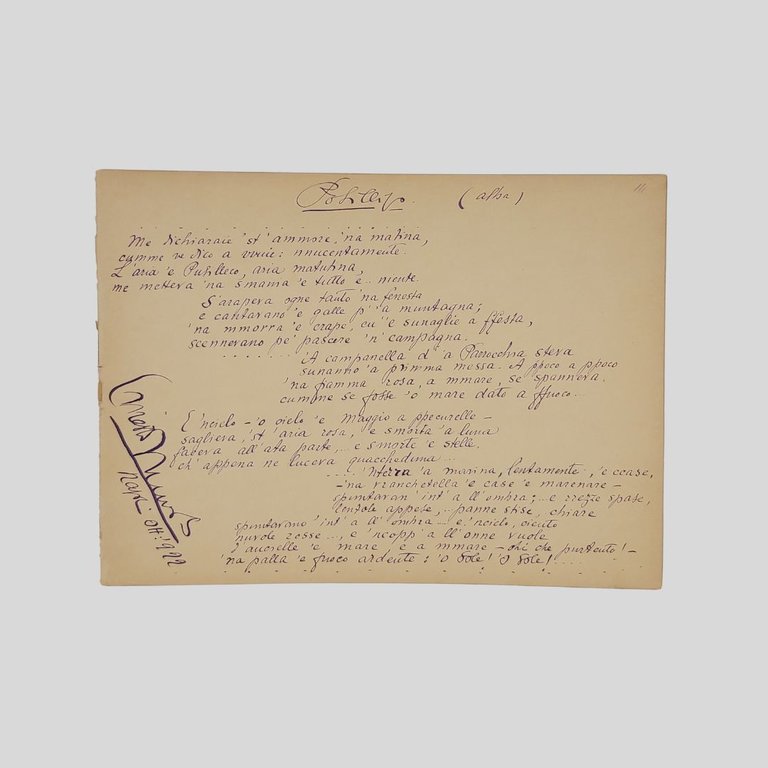 Posillipo. (alba)
Me dichiaraie 'st'ammore, 'na matina,
cumme ve dico a vvuie: nnucentamente.
L'aria 'e Pusilleco, aria matutina,
me metteva 'na smania 'e tutto e... niente.
S'arapeva ogne tanto 'na fenesta
e cantavano 'e galle p''a muntagna;
'na mmorra 'e crape, cu 'e sunaglie a ffesta,
scennevano pe' pascere 'n'campagna.
'A campanella d''a Parrocchia steva
sunanno 'a primma messa. A ppoco a ppoco
'na fiamma rosa, a mmare, se spanneva,
cumme se fosse 'o mare dato a ffuoco...
E 'ncielo - 'o cielo 'e Maggio a ppecurelle -
sagliera, 'st'aria rosa, 'e smorta 'a luna
all'ata parte,... e smorte 'e stelle,
ch'appena ne luceva quacchеduna...
.... 'Nterra 'a marina, lentamente, 'e ccase,
- 'na vranchetella 'e case 'e marenare -
spuntavan' 'int'a ll'ombra;... e rrezze spase,
lenzole appese,... panne stise, chiare
spuntavano 'int'a ll'ombra.... e 'ncielo,
nuvole rosse..., e 'ncopp'a ll'onne
l'aucielle 'e mare e a mmare - ohè che purtento! -
'na palla 'e fuoco ardente: 'o sole! 'O sole!....
Napoli ott. 1922